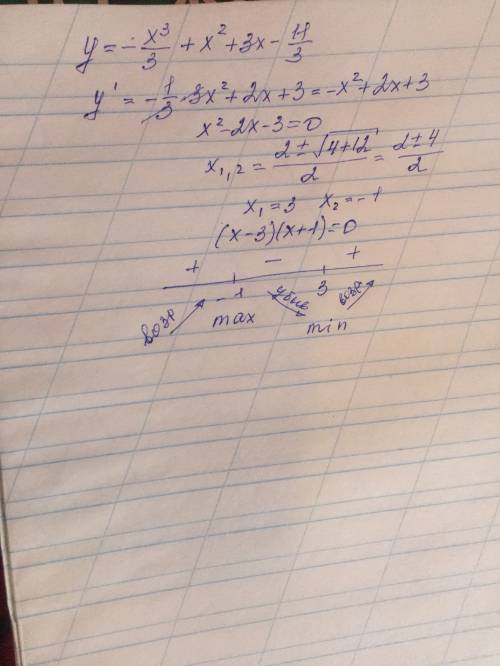 y = -x³/3 + x² + 3x - 11/3
y' = -1/3 · 3x² + 2x + 3 = -x² + 2x + 3
x² - 2x - 3 = 0
x₁,₂ = (2 ± √(4+12))/2 = (2 ± 4)/2
x₁ = 3 x₂ = -1
(x-3)(x+1) = 0
+ - +
-1 3
возр убыв возр
max min